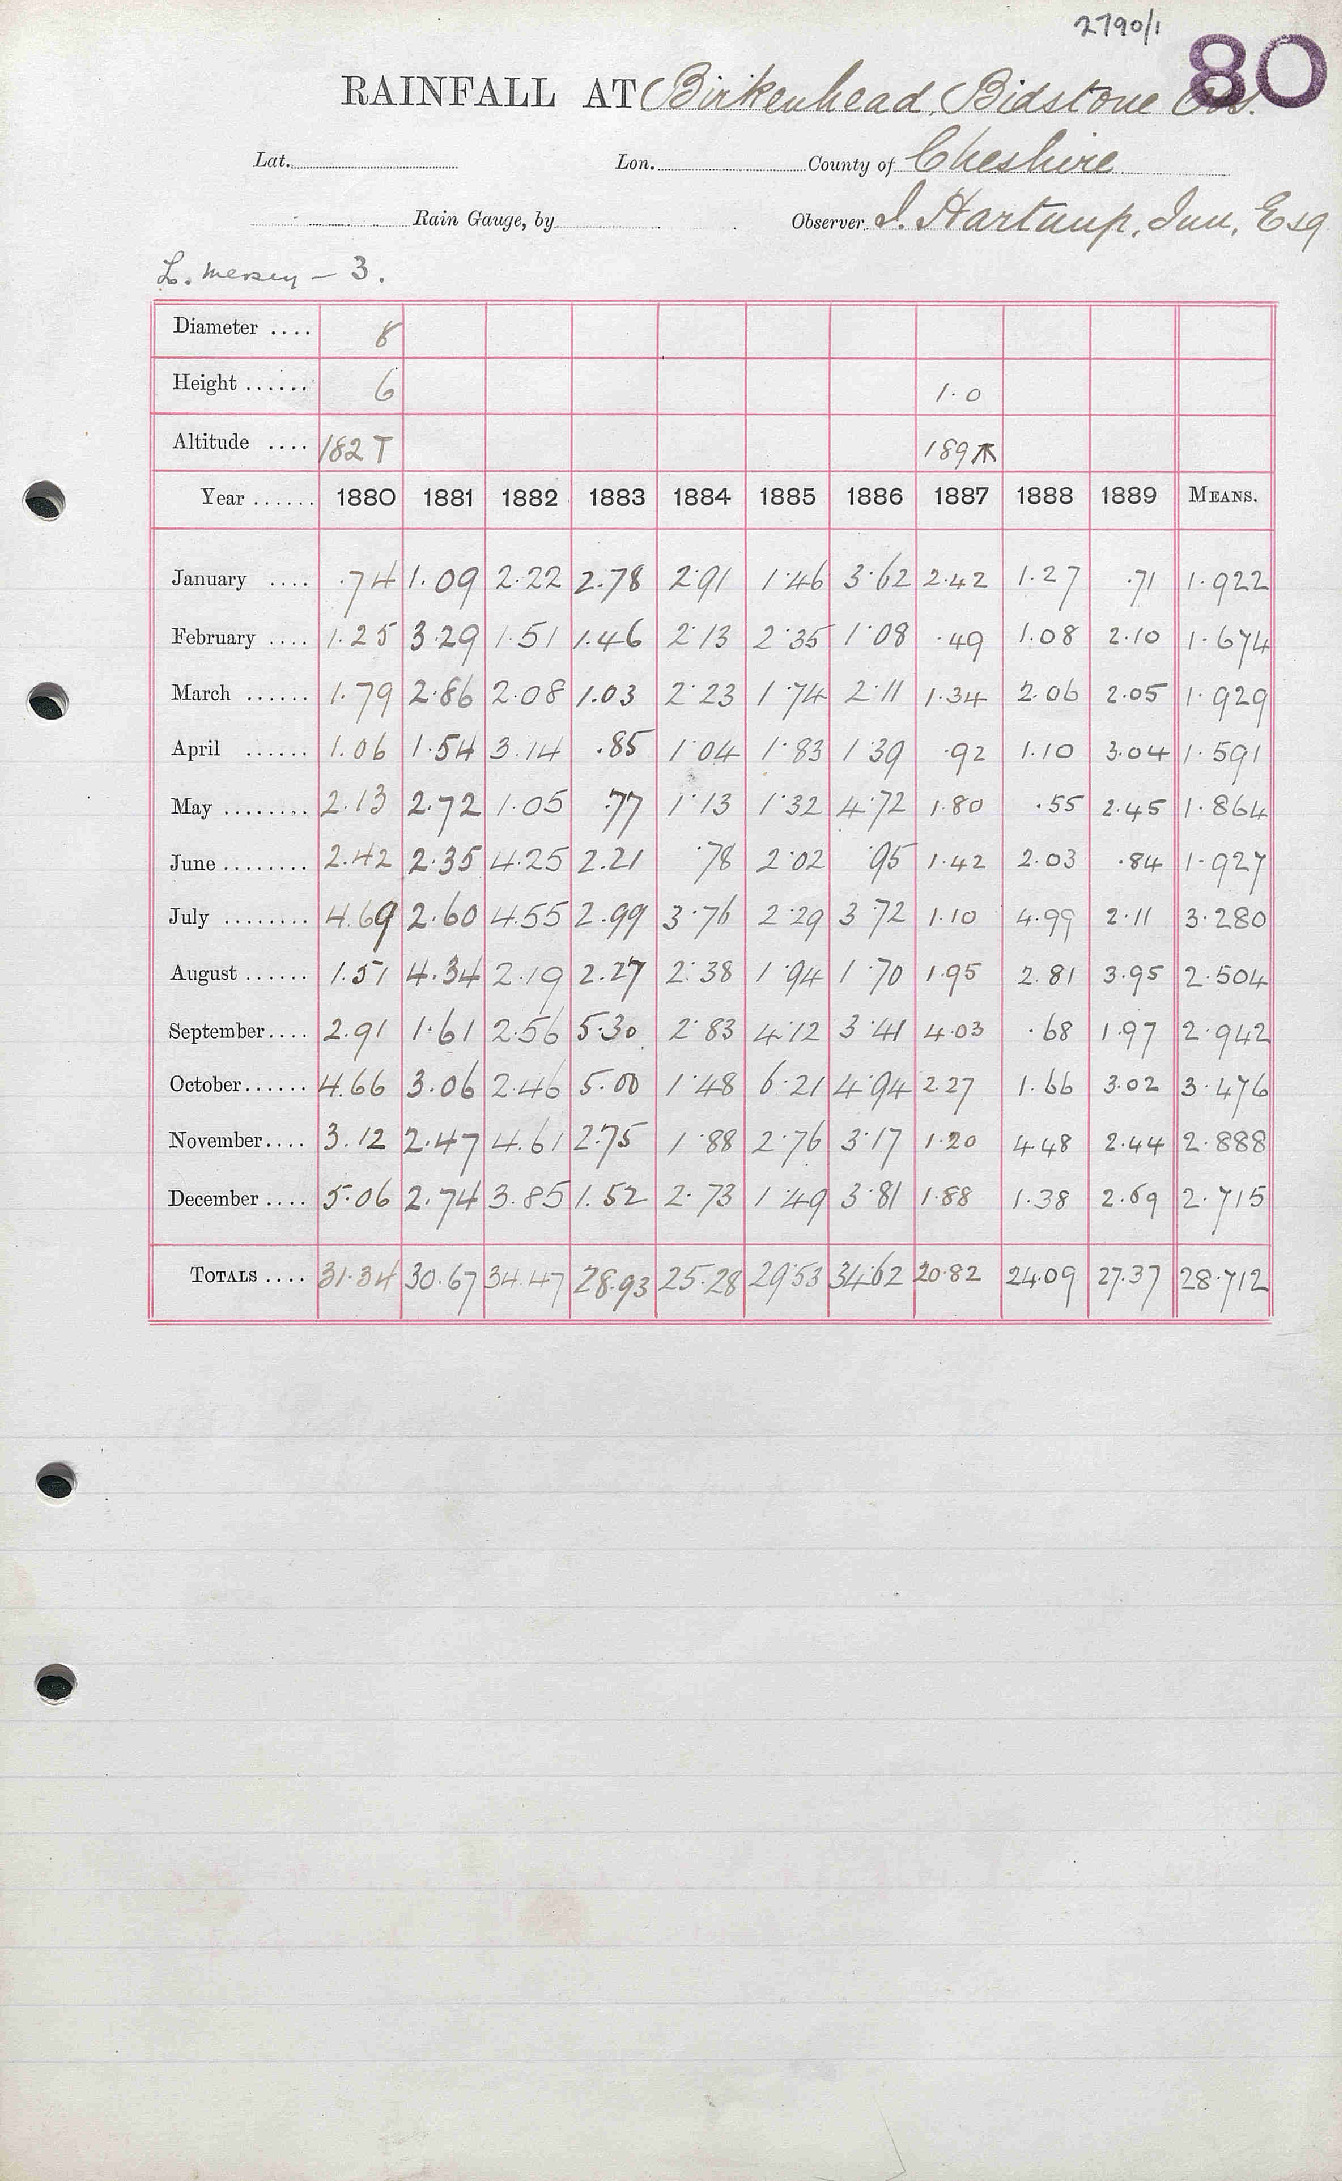 2790/1
80
RAINFALL AT Birkenhead, Bidstone Obs.
Lat. Lon. County of Cheshire
Rain Gauge, by Observer J. Hartnup, Jun, Esq
L. Mersey – 3.
Diameter .... 8
Height ...... 6 1.0
Altitude .... 182 T 189
Year ...... 1880 1881 1882 1883 1884 1885 1886 1887 1888 1889 MEANS.
January .... .74 1.09 2.22 2.78 2.91 1.46 3.62 2.42 1.27 .71 1.922
February .... 1.25 3.29 1.51 1.46 2.13 2.35 1.08 .49 1.08 2.10 1.674
March ...... 1.79 2.86 2.08 1.03 2.23 1.74 2.11 1.34 2.06 2.05 1.929
April ...... 1.06 1.54 3.14 .85 1.04 1.83 1.39 .92 1.10 3.04 1.591
May ........ 2.13 2.72 1.05 .77 1.13 1.32 4.72 1.80 .55 2.45 1.864
June ........ 2.42 2.35 4.25 2.21 .78 2.02 .95 1.42 2.03 .84 1.927
July ........ 4.69 2.60 4.55 2.99 3.76 2.29 3.72 1.10 4.99 2.11 3.280
August ...... 1.51 4.34 2.19 2.27 2.38 1.94 1.70 1.95 2.81 3.95 2.504
September.... 2.91 1.61 2.56 5.30 2.83 4.12 3.41 4.03 .68 1.97 2.942
October...... 4.66 3.06 2.46 5.00 1.48 6.21 4.94 2.27 1.66 3.02 3.476
November.... 3.12 2.47 4.61 2.75 1.88 2.76 3.17 1.20 4.48 2.44 2.888
December .... 5.06 2.74 3.85 1.52 2.73 1.49 3.81 1.88 1.38 2.69 2.715
TOTALS .... 31.34 30.67 34.47 28.93 25.28 29.53 34.62 20.82 24.09 27.37 28.712